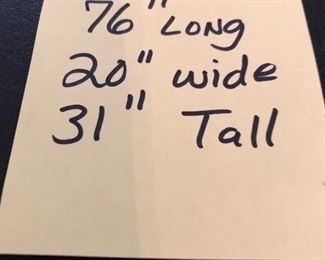 76" Long
20" wide
31" Tall